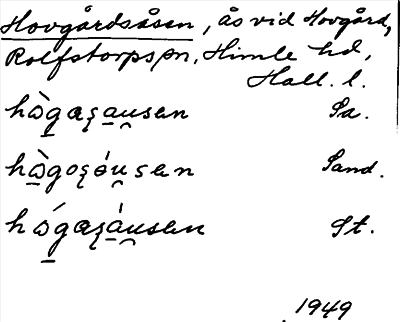 Hovgårdsåsen, ås vid Hovgård,
Rolfstorps sn, Himle hd,
Hall. l.
hɔ̀gaʂau̯sen Sa.
hɔ̀goʂóu̯sen Sand.
hɔ́gaʂáu̯sen St.
1949